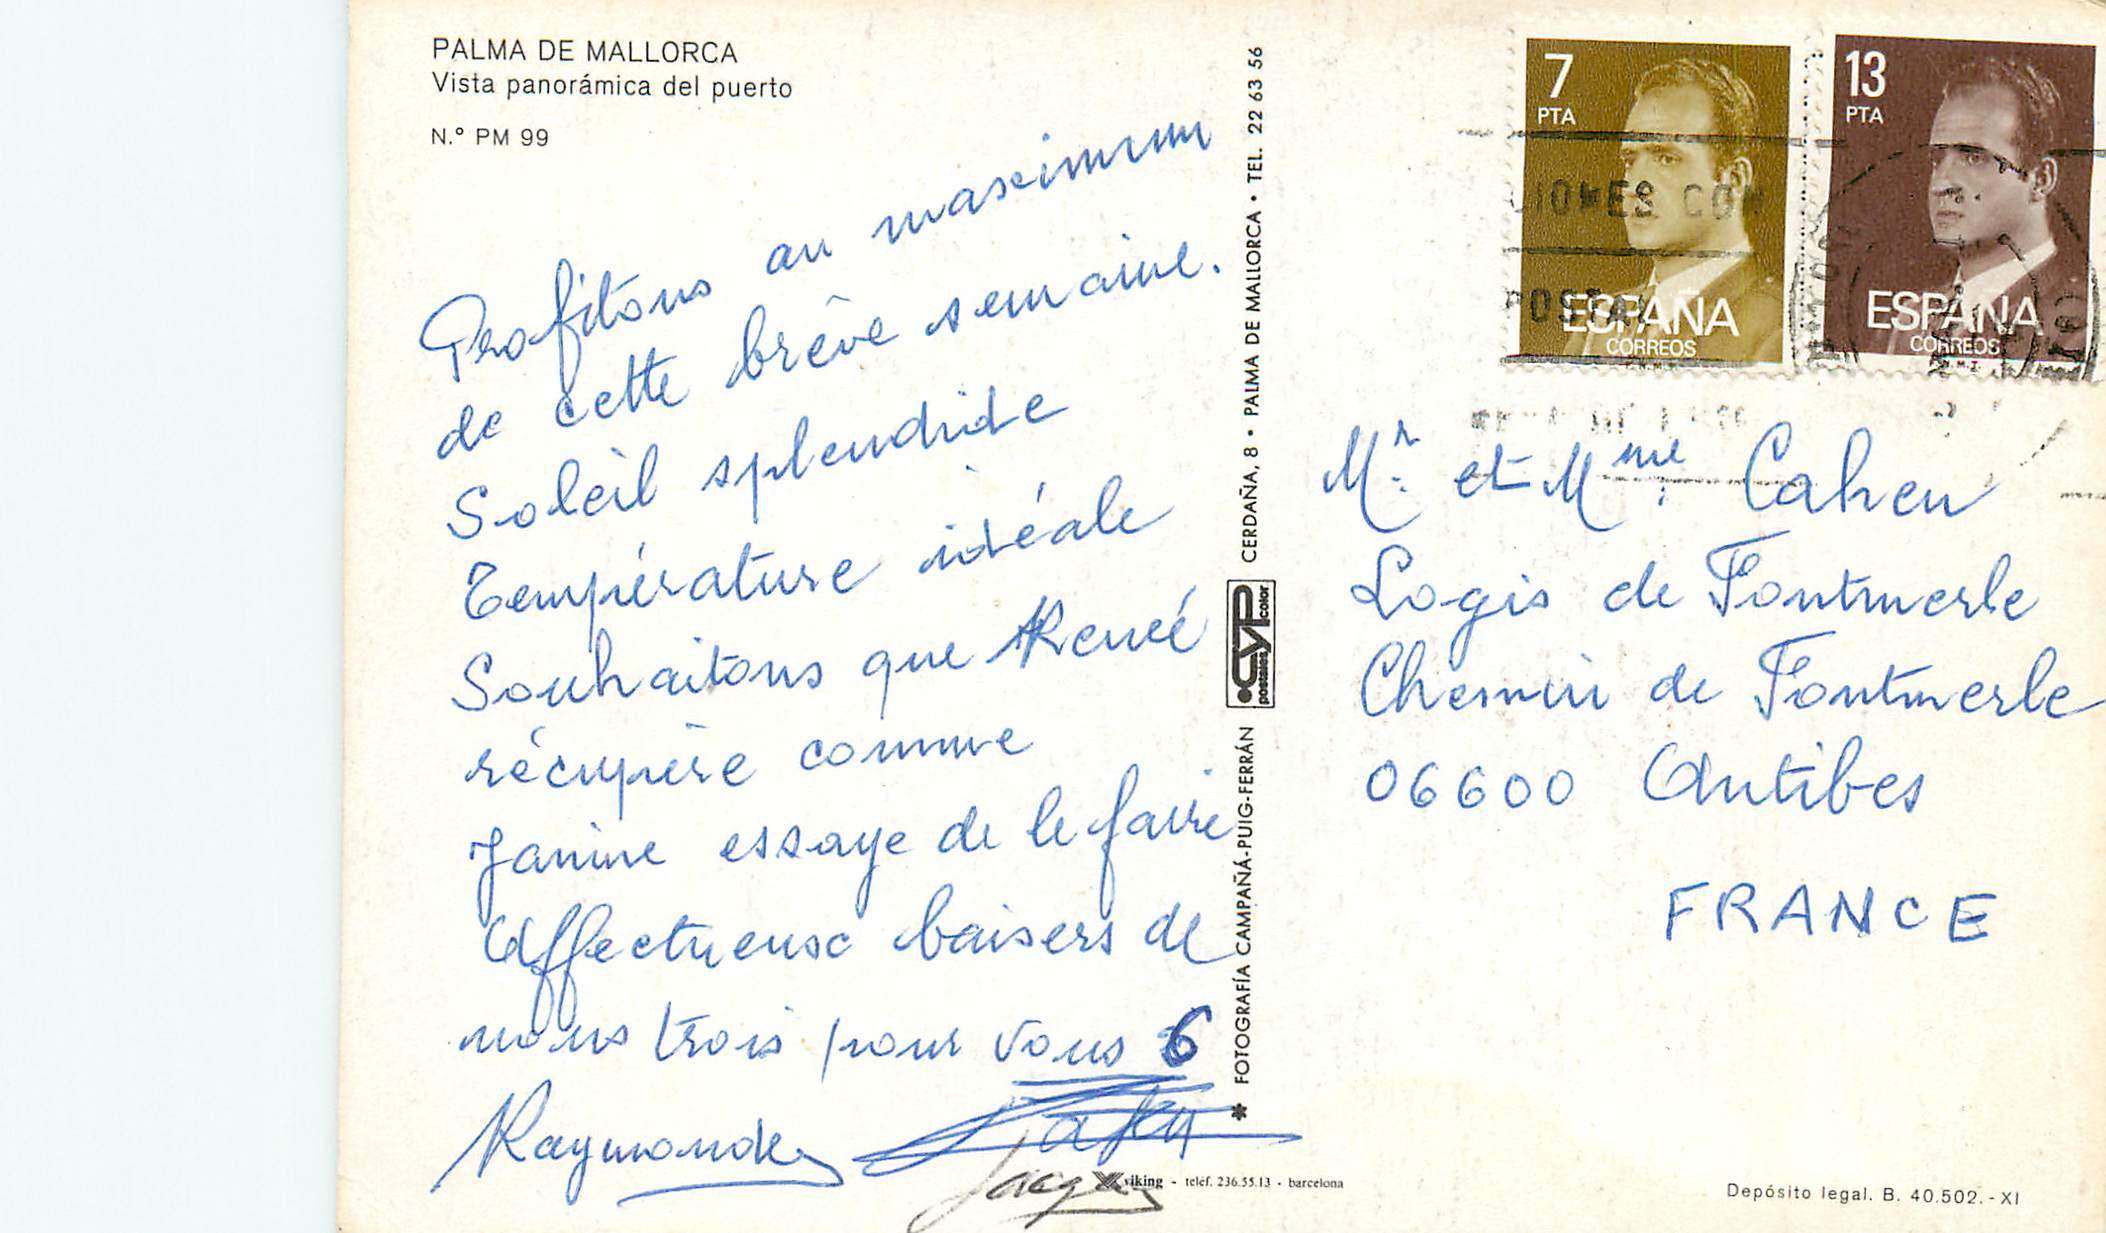 PALMA DE MALLORCA
Vista panorámica del puerto
N.º PM 99
Profitons au maximum
de cette brève semaine.
Soleil splendide
Température idéale
Souhaitons que Renée
récupère comme
Janine essaye de le faire
Affectueusc baisers de
nous trois pour vous 6
Raymonde
Jacques
viking - teléf. 236.55.13 - barcelona
* FOTOGRAFÍA CAMPAÑÁ-PUIG-FERRÁN
CYP color
postales
CERDAÑA, 8 • PALMA DE MALLORCA • TEL. 22 63 56
7
PTA
ESPAÑA
CORREOS
F.N.M.T.
13
PTA
ESPAÑA
CORREOS
POSTAL
Mr. et Mme. Cahen
Logis de Fontmerle
Chemin de Fontmerle
06600 Antibes
FRANCE
Depósito legal. B. 40.502.-XI